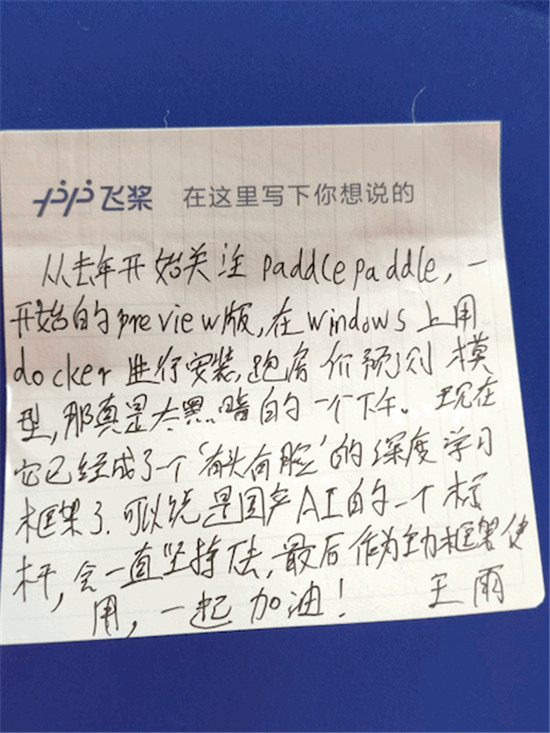 飞桨 在这里写下你想说的
从去年开始关注 paddlepaddle,一
开始的preview版,在windows上用
docker进行安装,跑房价预测模
型,那真是太黑暗的一个下午。现在
它已经成了一个'有头有脸'的深度学习
框架了.可以说是国产AI的一个标
杆,会一直坚持下去,最后作为主力框架使
用,一起加油! 王雨